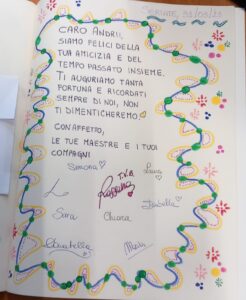 CARO ANDRII,
SIAMO FELICI DELLA
TUA AMICIZIA E DEL
TEMPO PASSATO INSIEME.
TI AUGURIAMO TANTA
FORTUNA E RICORDATI
SEMPRE DI NOI, NON
TI DIMENTICHEREMO
CON AFFETTO,
LE TUE MAESTRE E I TUOI
COMPAGNI
Simona
Laura
T.V.B.
L
Isabella
Sara
Chiara